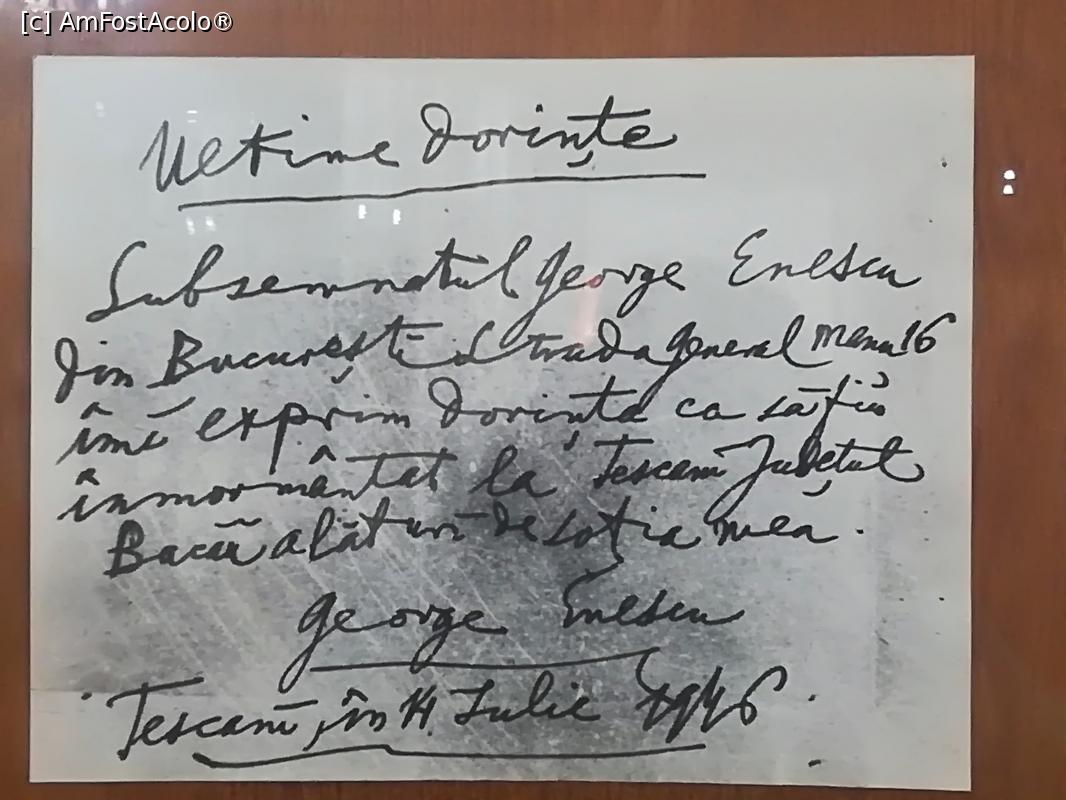 [c] AmFostAcolo®
Ultime dorințe
Subsemnatul George Enescu
din București Strada General Manu 16
îmi exprim dorința ca să fiu
înmormântat la Tescani Județul
Bacău alături de soția mea.
George Enescu
Tescani, în 14 Iulie 1946